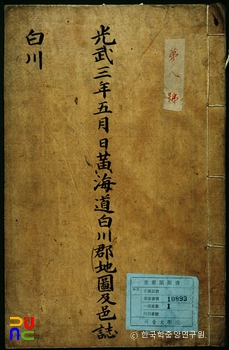 第八號
光武三年五月日黃海道白川郡地圖及邑誌
白川
10893
1
© 한국학중앙연구원